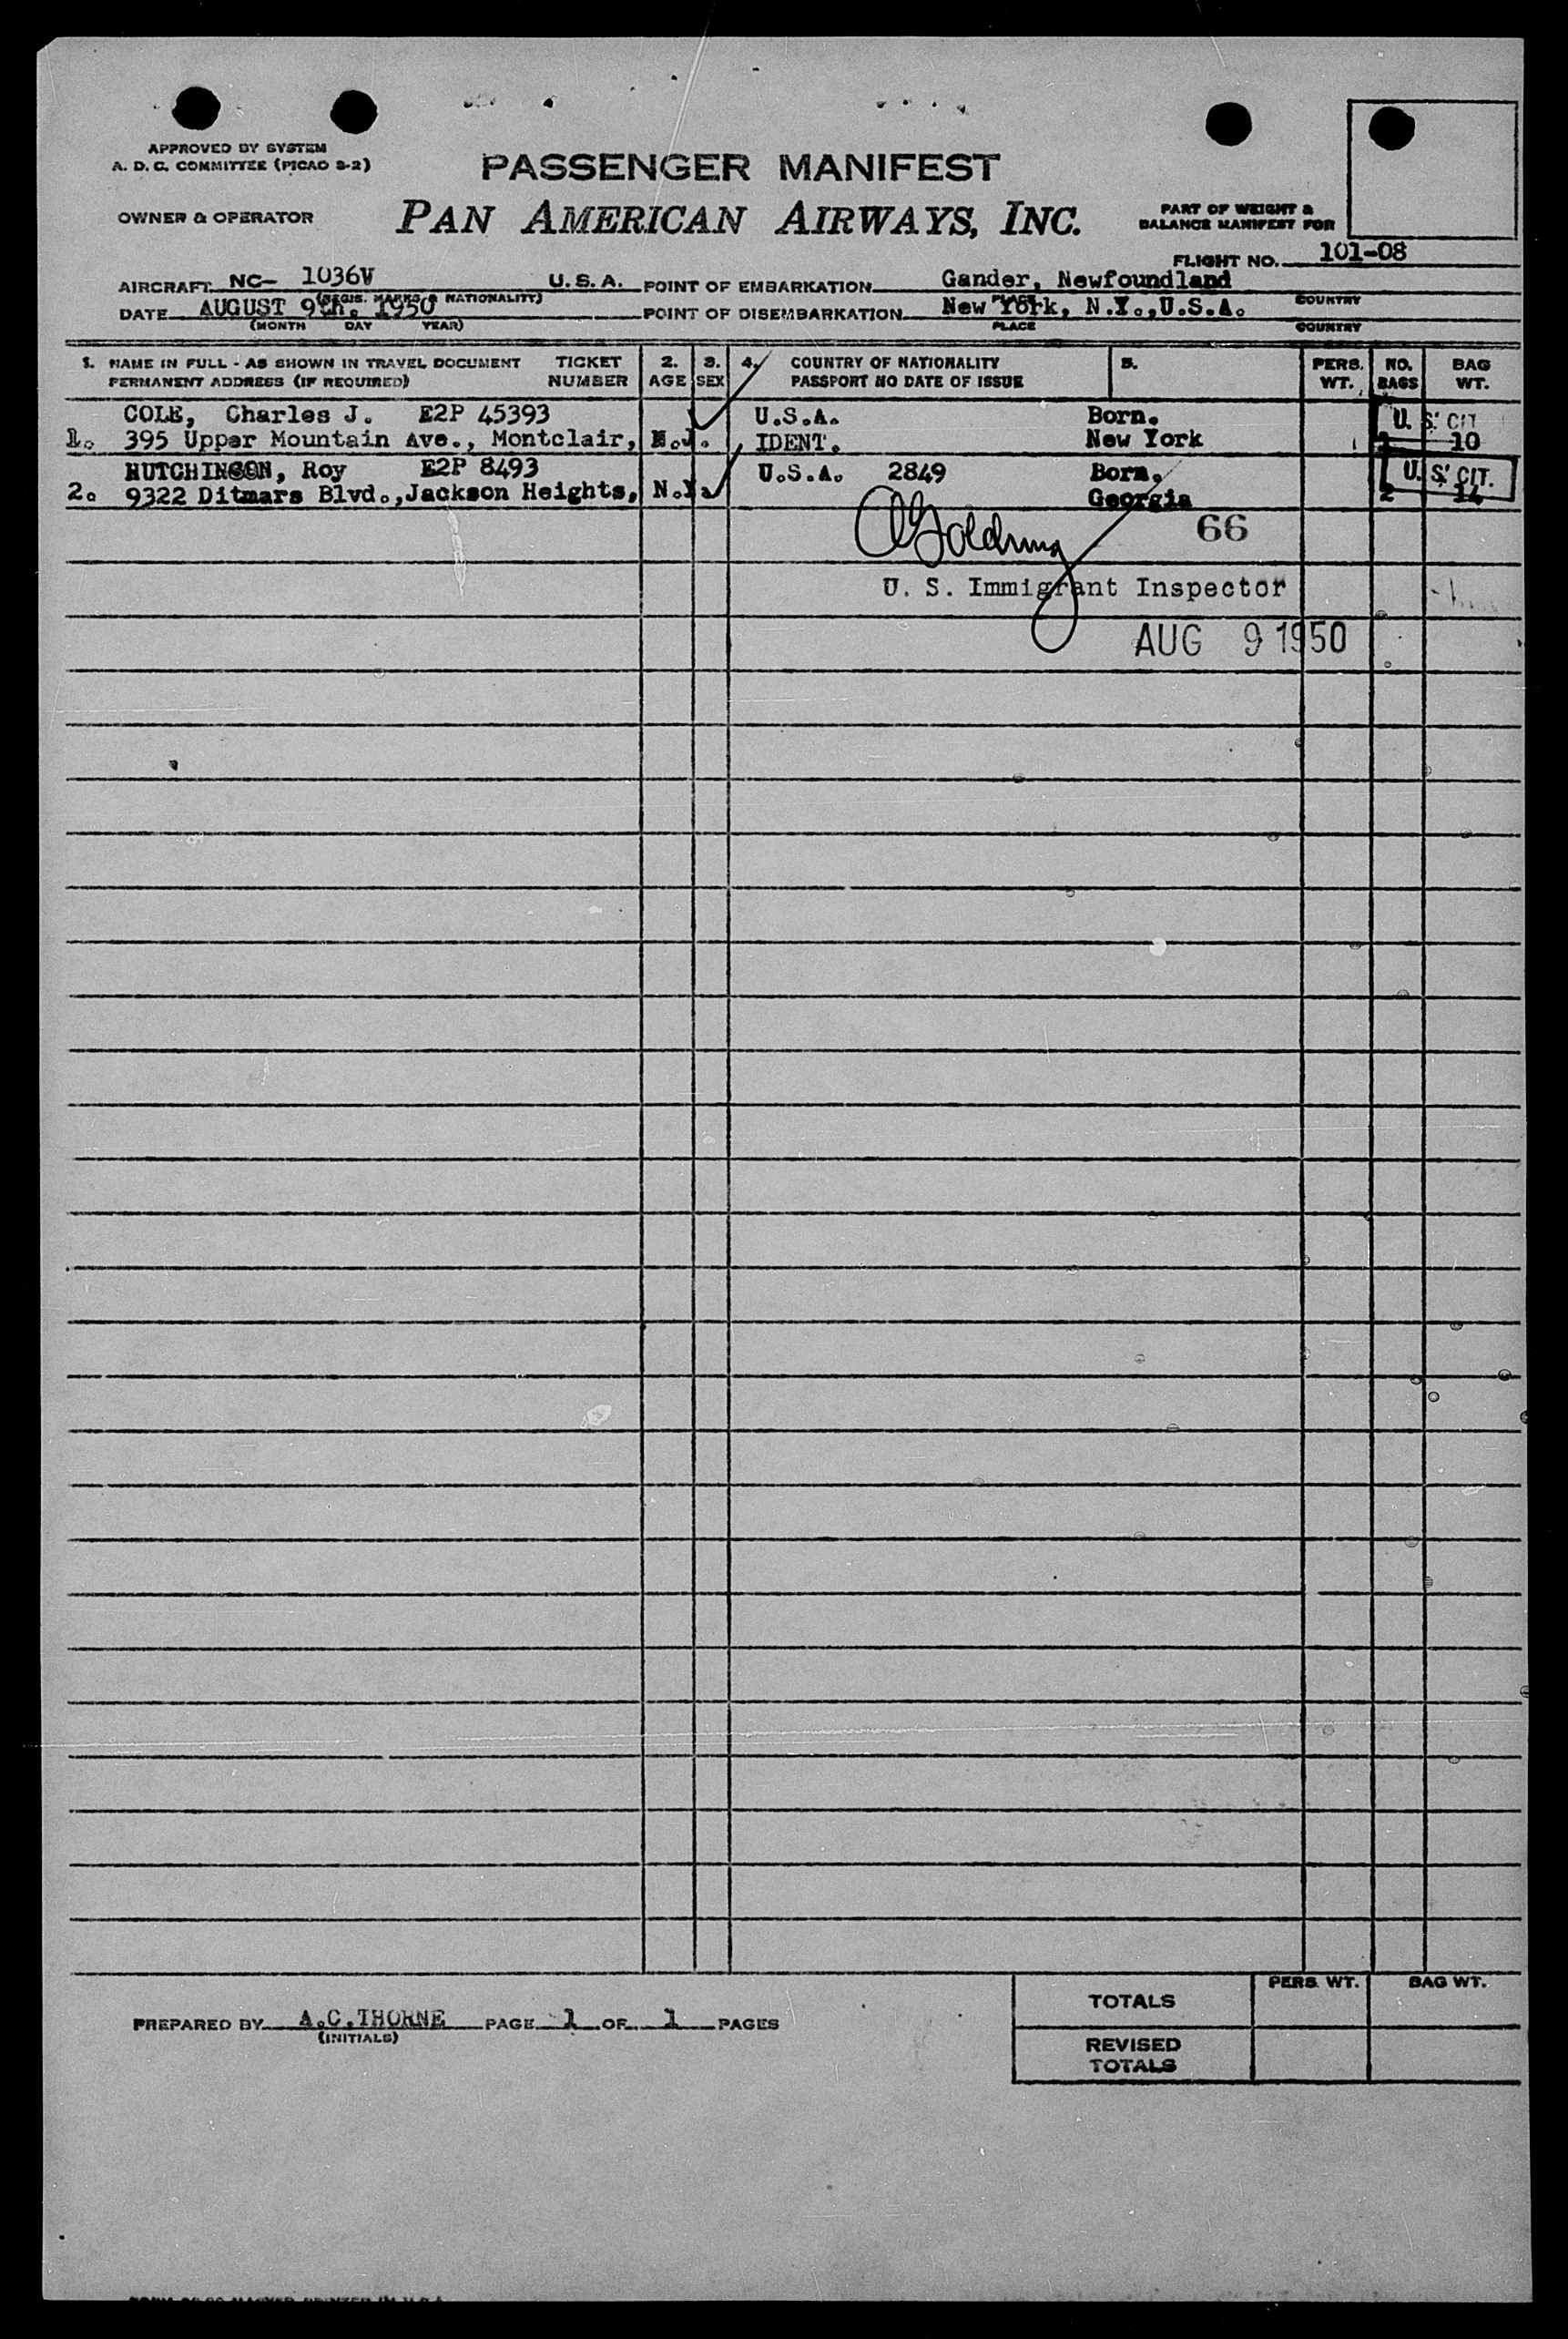 APPROVED BY SYSTEM
A. D. C. COMMITTEE (PICAO S-2)
PASSENGER MANIFEST
OWNER & OPERATOR
PAN AMERICAN AIRWAYS, INC.
PART OF WEIGHT &
BALANCE MANIFEST FOR
FLIGHT NO. 101-08
AIRCRAFT NC- 1036V U.S.A. POINT OF EMBARKATION Gander, Newfoundland
(REGIS. MARKS & NATIONALITY) PLACE COUNTRY
DATE AUGUST 9th. 1950 POINT OF DISEMBARKATION New York, N.Y.,U.S.A.
(MONTH DAY YEAR) PLACE COUNTRY
1. NAME IN FULL - AS SHOWN IN TRAVEL DOCUMENT TICKET 2. 3. 4. COUNTRY OF NATIONALITY 5. PERS. NO. BAG
PERMANENT ADDRESS (IF REQUIRED) NUMBER AGE SEX PASSPORT NO DATE OF ISSUE WT. BAGS WT.
COLE, Charles J. E2P 45393 U.S.A. Born. U. S. CIT
1. 395 Upper Mountain Ave., Montclair, N.J. IDENT. New York 10
HUTCHINSON, Roy E2P 8493 U.S.A. 2849 Born. U. S. CIT.
2. 9322 Ditmars Blvd.,Jackson Heights, N.Y. Georgia 2 14
66
U. S. Immigrant Inspector
AUG 9 1950
PERS. WT. BAG WT.
TOTALS
PREPARED BY A.C.THORNE PAGE 1 OF 1 PAGES
(INITIALS)
REVISED
TOTALS